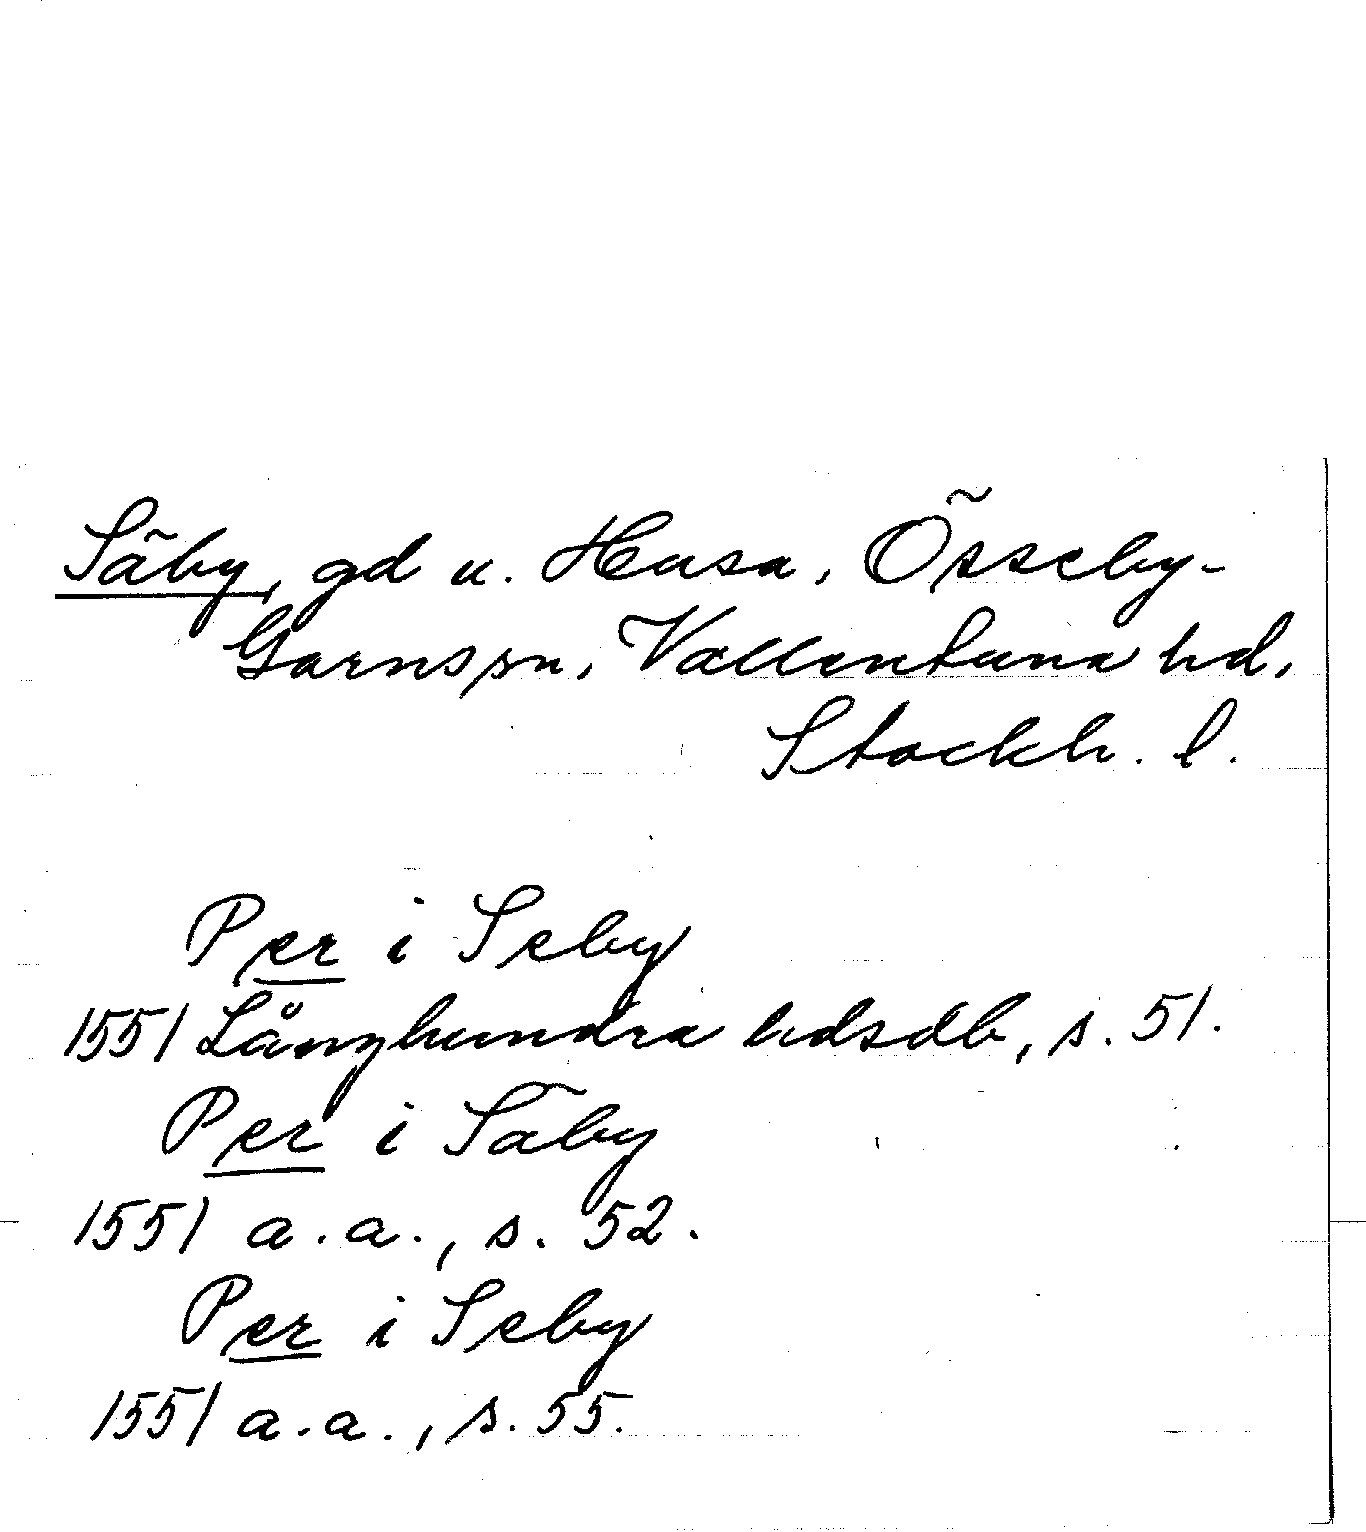 Säby, gd u. Husa, Össeby-
Garnspn, Vallentuna hd,
Stockh. l.
Per i Seby
1551 Långhundra hdsdb, s. 51.
Per i Säby
1551 a.a., s. 52.
Per i Seby
1551 a.a., s. 55.